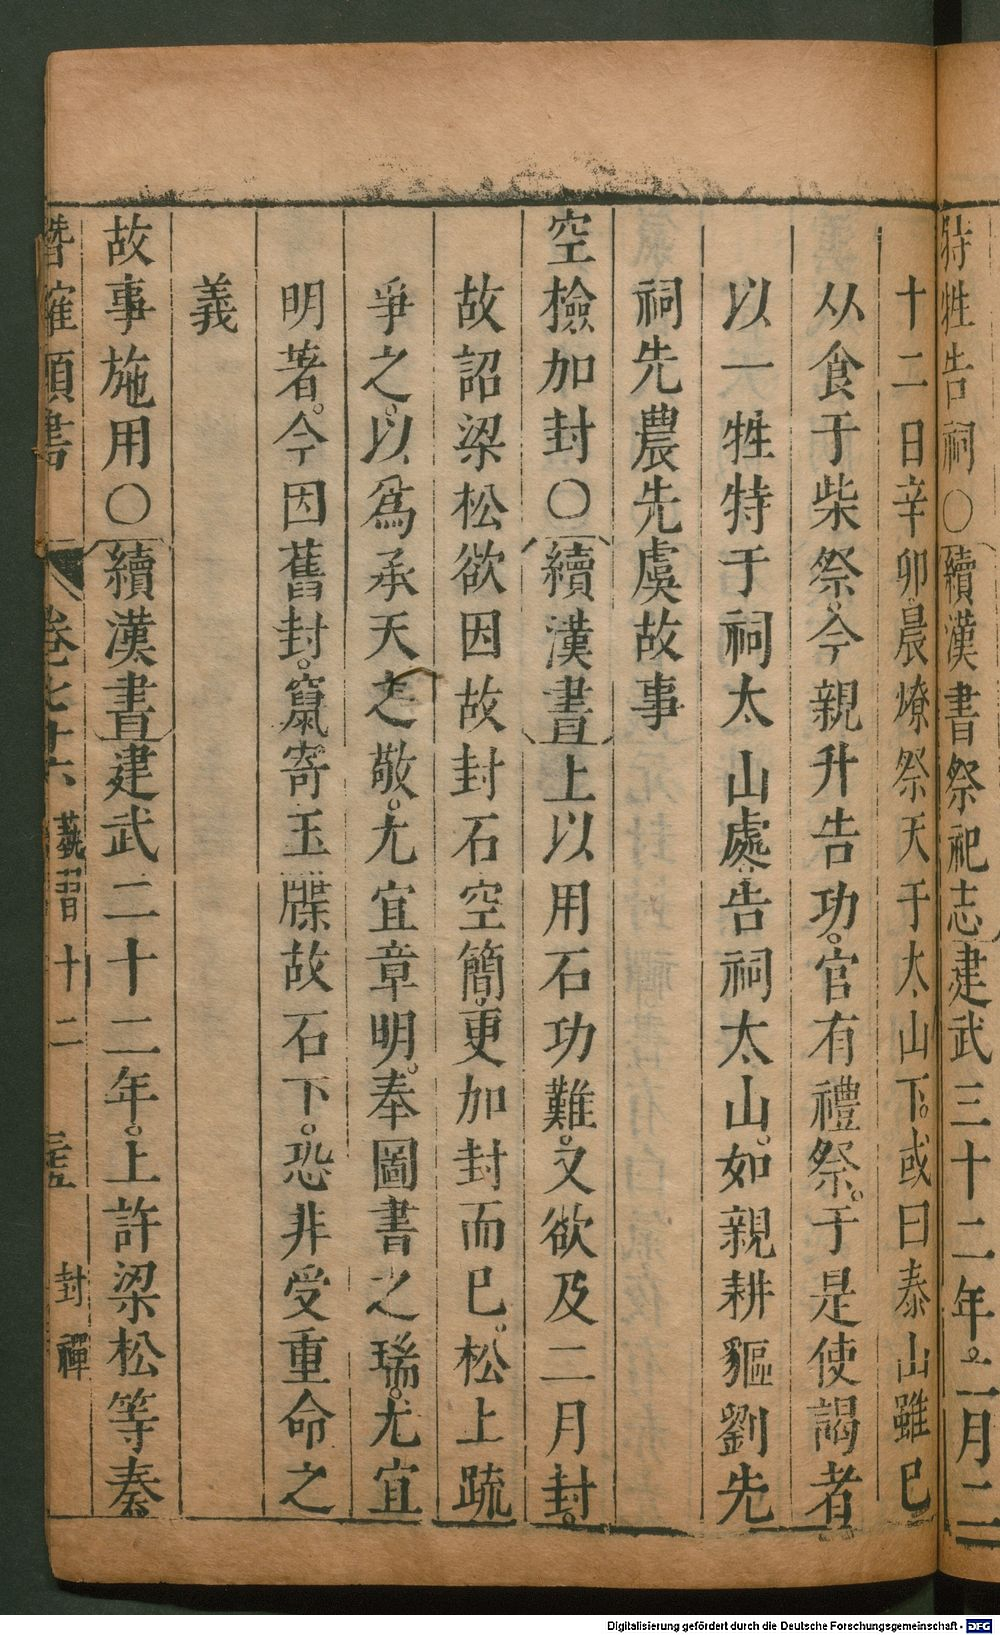 特牲告祠○續漢書祭祀志建武三十二年二月二
十二日辛卯晨燎祭天于太山下或曰泰山雖巳
从食于柴祭今親升告功官有禮祭于是使謁者
以一牲特于祠太山處告祠太山如親耕貙劉先
祠先農先虞故事
空檢加封○續漢書上以用石功難又欲及二月封
故詔梁松欲因故封石空簡更加封而巳松上疏
爭之以爲承天之敬尤宜章明奉圖書之瑞尤宜
明著今因舊封竄寄玉牒故石下恐非受重命之
義
故事施用○續漢書建武二十二年上許梁松等奏
潛確類書 卷七十六 藝習十二 三五 封禪
Digitalisierung gefördert durch die Deutsche Forschungsgemeinschaft - DFG